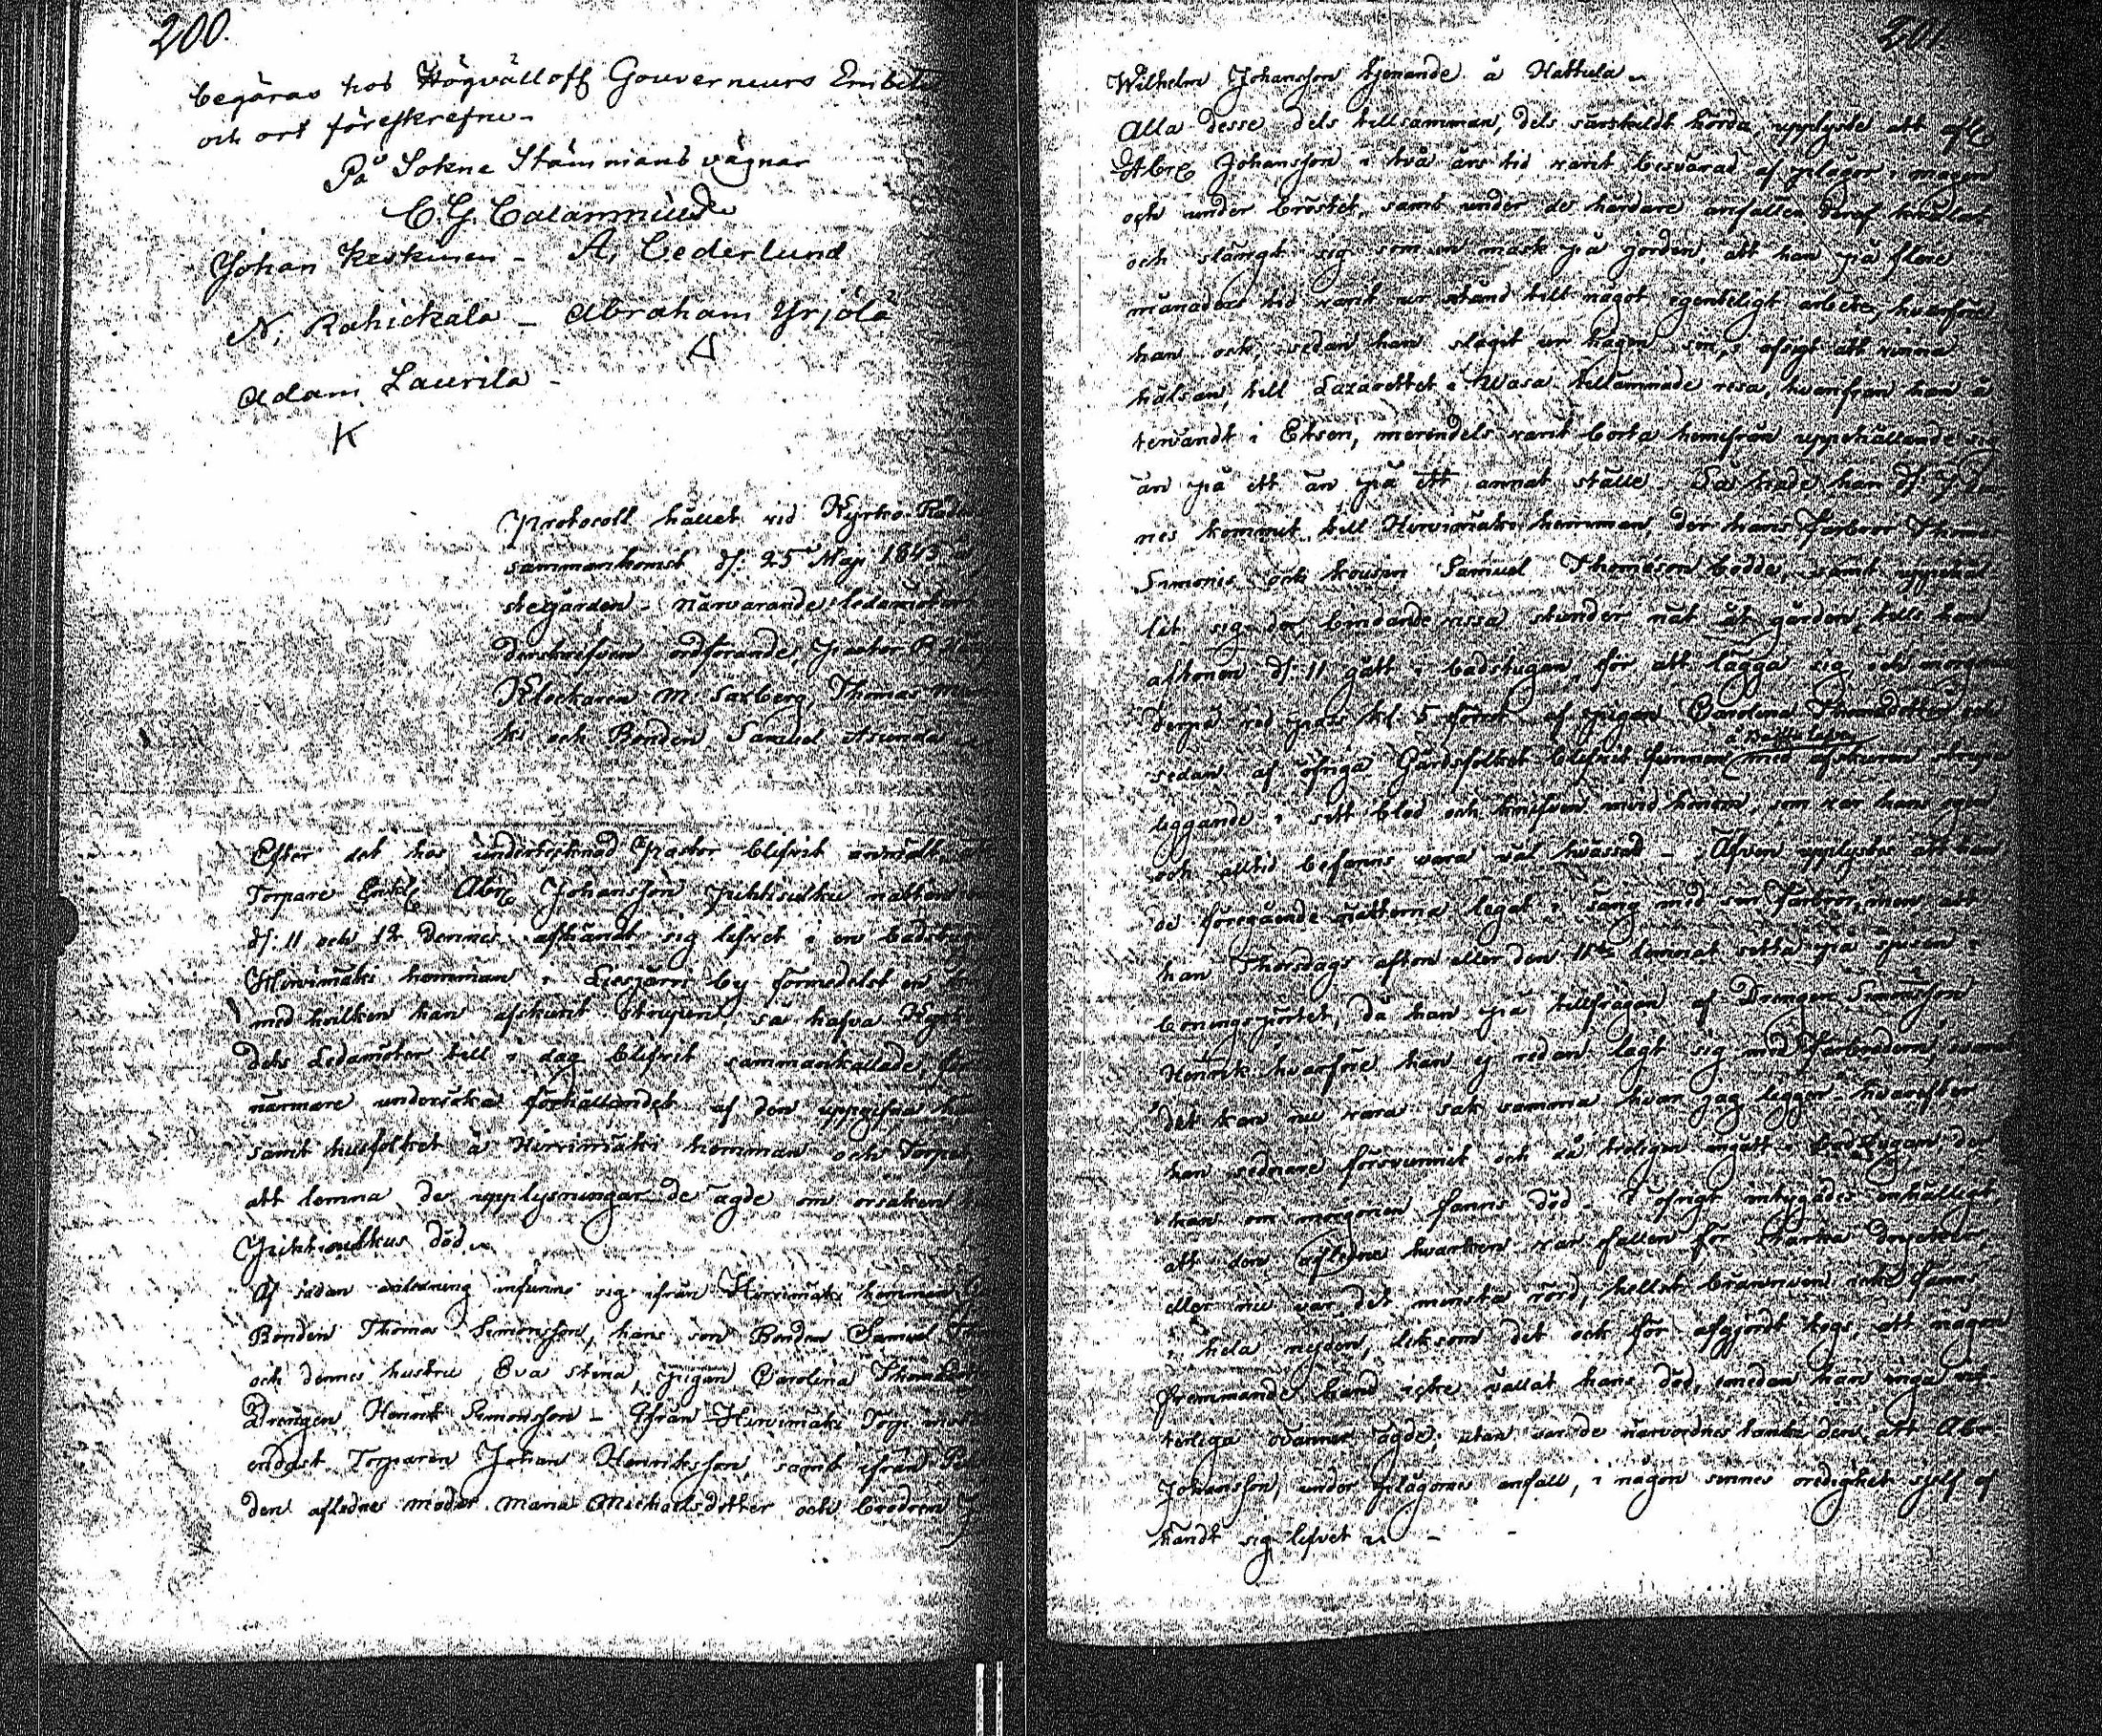 200.
begäras hos Högvällofl Gouverneurs Embete
och ort föreskrefne -
På Sokne Stämmans vägnar
C. G. Calamnius
Johan Keskinen - A, Cederlund
N, Rahickala - Abraham Yrjölä
Adam Laurila -
K
Protocoll hållet vid Kyrko-Råds
sammankomst d: 25 Maji 1843 å
stegården - närvarande ledamöter
derskrefven ordförande, Pastor
Klockaren M. Saxberg, Thomas
ki och Bonden Samuel Asunda
Efter det hos undertecknad Pastor blifvit anmält, att
Torpare Abr Johansson natten
d: 11 och 12 dennes afhändt sig lifvet i en badstug
Hirvimäki hemman i Liesjärvi by förmedelst en
med hvilken han afskurit strupen, så hafva Kyrko
dets Ledamöter till i dag blifvit sammankallade, för
närmare undersöka förhållandet af den uppgifna
samt husfolket å Hirvimäki hemman och Torpet
att lemna de upplysningar de ägde om orsaken
död.
Af sådan anledning infunno sig ifrån Hirvimäki hemman
Bonden Thomas Simonsson, hans son Bonden Samuel
och dennes hustru Eva Stina, pigan Carolina Thomasd
Drengen Henrik Simonsson - Ifrån Hirvimäki Torp
endast Torparen Johan Henriksson, samt ifrån
den aflednes moder Maria Michaelsdotter och brodren
201.
Wilhelm Johansson tjenande å Hattula
Alla desse dels tillsamman, dels särskildt hörda, upplyste att afl
Abr Johansson i två års tid varit besvärad af plågor i magen
och under bröstet, samt under de hårdare anfallen deraf
och slängt sig som en mask på jorden, att han på flere
månaders tid varit ur stånd till något egenteligt arbete, hvarföre
han ock, sedan han slagit ur hågen sin, i afsigt att vinna
hälsan, till Lazarettet i Wasa tillämnade resa, hvarifrån han å
tervändt i Etseri, merendels varit borta hemifrån uppehållande sig
än på ett än på ett annat ställe. Så hade han d: 7
nes kommit till Hirvimäki hemman, der hans farbror Thomas
Simonis. och kousin Samuel Thomasson bodde, samt uppehål
lit sig der bindande vissa stunder nät åt gården, tills han
aftonen d: 11 gått i badstugan, för att lägga sig och morgonen
derpå vid pass kl. 5 först af pigan Carolina Thomasdotter och
sedan af öfriga Gårdsfolket blifvit funnen med afskuren strupe
liggande i sitt blod och knifven invid honom, som var hans egen
och alltid befanns vara väl hvassad - Äfven upplystes att han
de föregående nätterna legat i säng med sin farbror, men att
han Thorsdags afton eller den 11te lemnat sitta på spisen i
boningspörtet, då han på tillfrågan af Drengen Simonsson
Henrik hvarföre han ej redan lagt sig med farbrodern, svarat
det kan nu vara sak samma hvar jag ligger - hvarefter
han sednare försvunnit och då troligen ingått i badstugan, der
han om morgonen fanns död - I öfrigt intygades enhälligt
att den aflidne hvarken var fallen för starka drycker,
eller nu var det minsta rörd, helst bränvin icke fanns
i hela nejden, liksom det ock för afgjordt togs, att någon
fremmande hand icke vållat hans död, emedan han inga vit-
terliga ovänner ägde; utan var de närvardnes tanke den, att Abr.
Johansson, under plågorne anfall, i någon sinnes oredighet sjelf af
händt sig lifvet